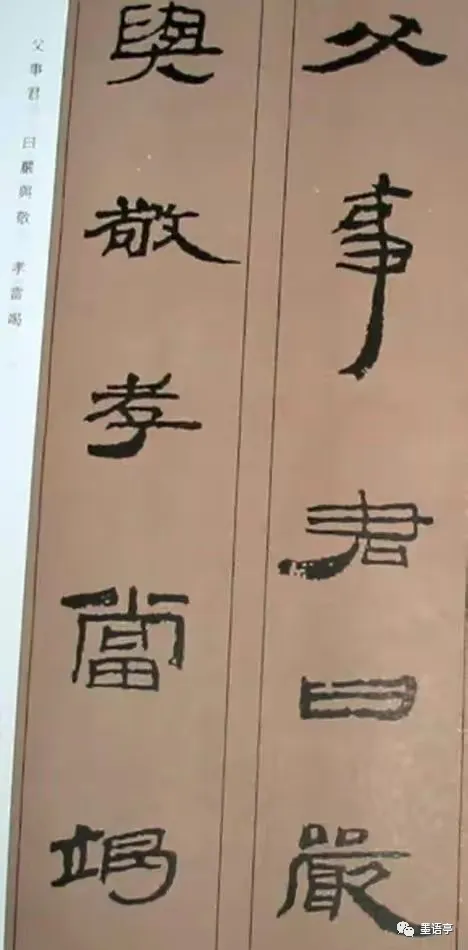 父事君曰嚴
與敬孝當竭
父事君 曰嚴與敬 孝當竭
墨语亭